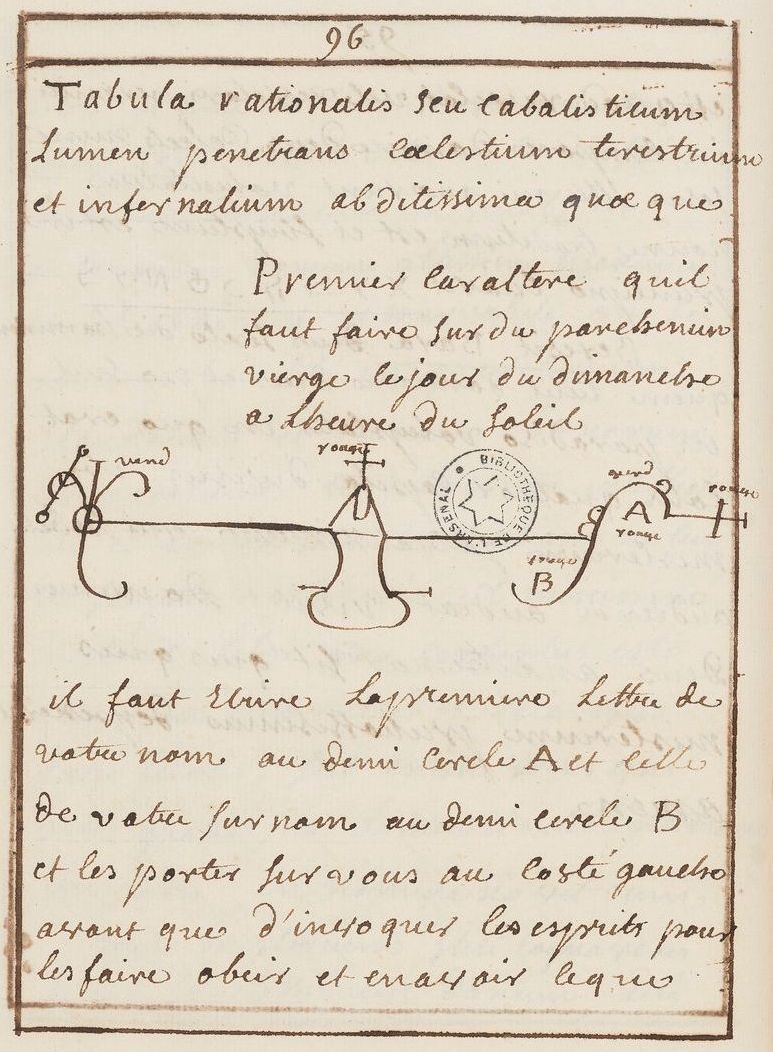 96
Tabula rationalis seu Cabalisticum
Lumen penetrans Cœlestium terestrium
et infernalium abditissima quæ que
Premier Caractere quil
faut faire sur du parchemin
vierge le jour du dimanche
a Lheure du Soleil
verd
rouge
BIBLIOTHEQUE DE L'ARSENAL
verd
rouge
A
rouge
rouge
B
il faut Ecrire La premiere Lettre de
votre nom au demi Cercle A et Celle
de votre surnom au demi cercle B
et les porter sur vous au Costé gauche
avant que d'invoquer les esprits pour
les faire obeir et en avoir Ce que